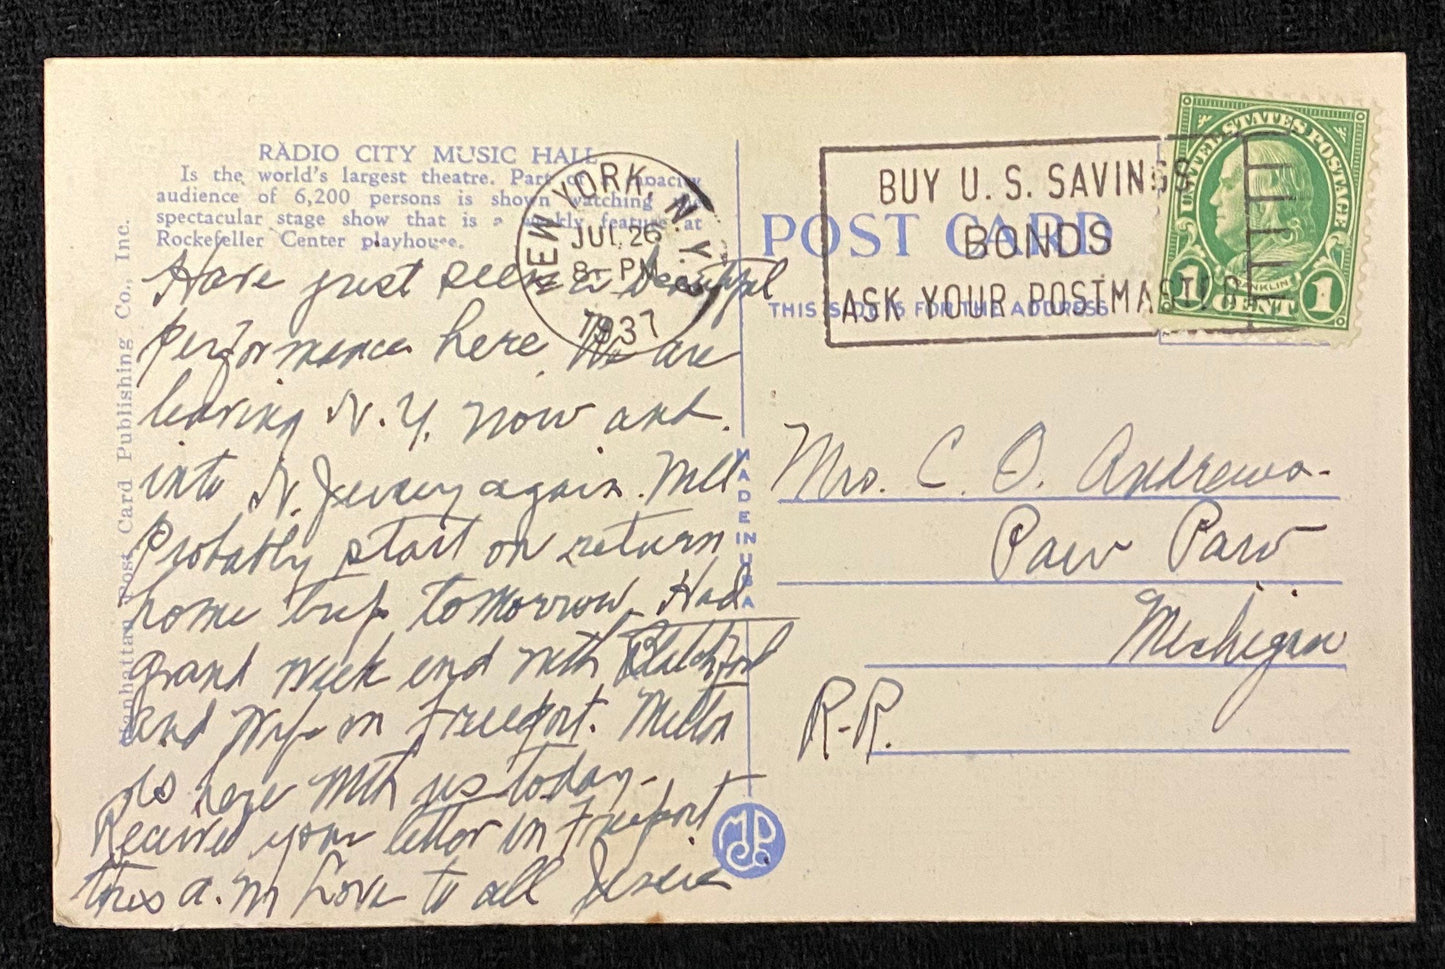 RADIO CITY MUSIC HALL
Is the world's largest theatre. Part of a capacity
audience of 6,200 persons is shown watching
spectacular stage show that is a weekly feature at
Rockefeller Center playhouse.
Manhattan Post Card Publishing Co., Inc.
NEW YORK, N.Y.
JUL 26
8 - PM
1937
Have just seen a beautiful
performance here. We are
leaving N.Y. now and
into N. Jersey again. Will
Probably start on return
home trip tomorrow. Had
grand week end with
and Wife in Freeport. Milton
is here with us today.
Received your letter in Freeport
this a.m. Love to all Jessie
MADE IN USA
POST CARD
THIS SIDE IS FOR THE ADDRESS
BUY U.S. SAVINGS
BONDS
ASK YOUR POSTMASTER
UNITED STATES POSTAGE
FRANKLIN
1 CENT 1
Mrs. C. O. Andrews.
Paw Paw
Michigan
R.R.